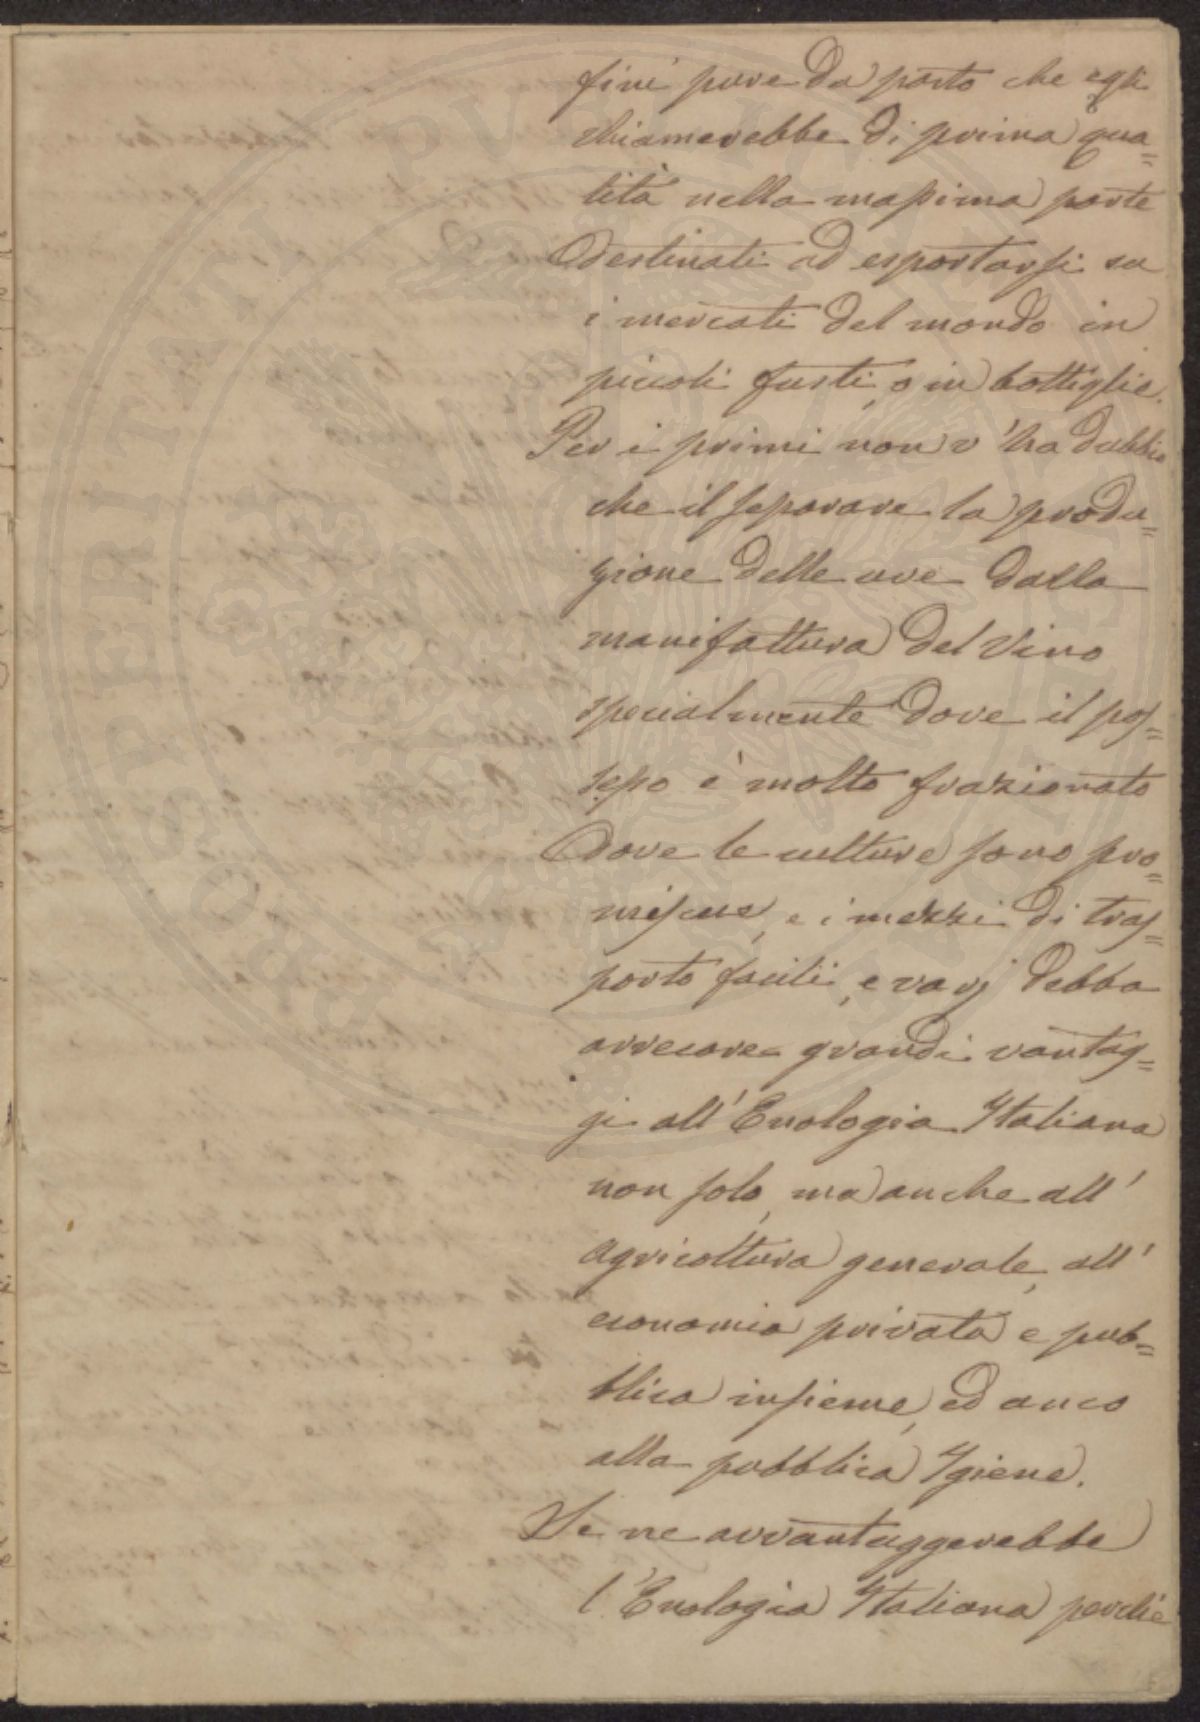 fini pure da pasto che egli
chiamerebbe di prima qua=
lità nella massima parte
destinati ad esportarsi su
i mercati del mondo in
piccoli fusti, o in bottiglie.
Per i primi non v'ha dubbio
che il separare la produ=
zione delle uve dalla
manifattura del Vino
specialmente dove il pos=
sesso è molto frazionato
dove le culture sono pro=
miscue, e i mezzi di tras=
porto facili, e varj debba
arrecare grandi vantag=
gi all'Enologia Italiana
non solo, ma anche all'
agricoltura generale, all'
economia privata e pub=
blica insieme, ed anco
alla pubblica Igiene.
Se ne avvantaggerebbe
l'Enologia Italiana perchè
PROSPERITATI PVBLICAE